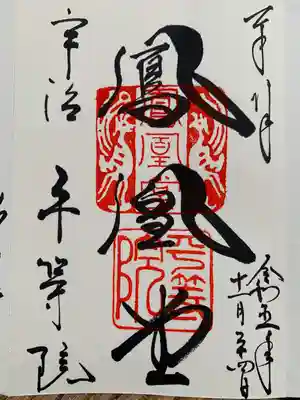 奉拝
令和五年
十一月二十四日
鳳凰堂
鳳凰堂
平等院
宇治
平等院